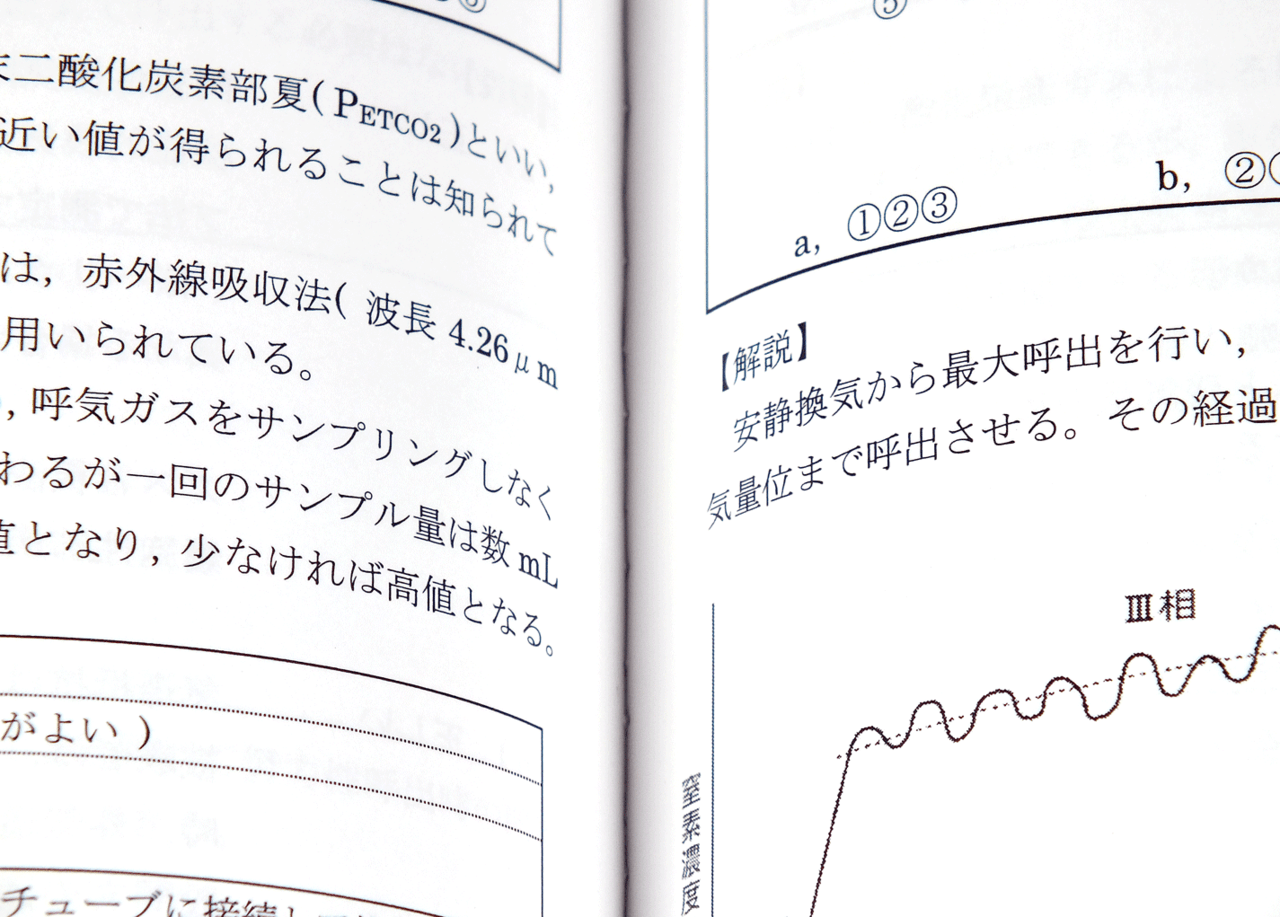 二酸化炭素部夏(PETCO2)といい,
近い値が得られることは知られて
は, 赤外線吸収法( 波長 4.26μm
用いられている。
, 呼気ガスをサンプリングしなく
わるが一回のサンプル量は数 mL
値となり, 少なければ高値となる。
がよい )
チューブに接続し
⑤
a, ①②③ b, ②
【解説】
安静換気から最大呼出を行い,
気量位まで呼出させる。その経過
Ⅲ相
窒素濃度